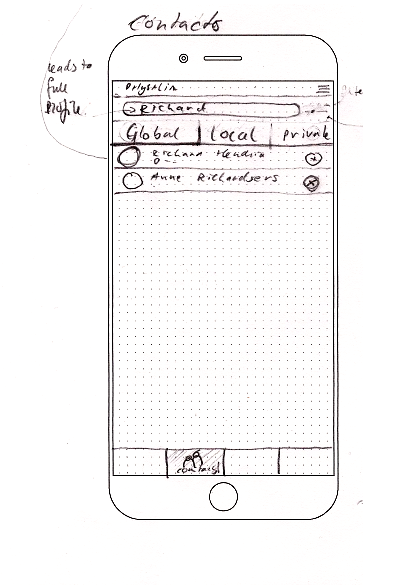 Contacts
leads to
full
profile.
Richard
Global | Local | Private
Richard Hendrix
Anne Richardsers
contacts